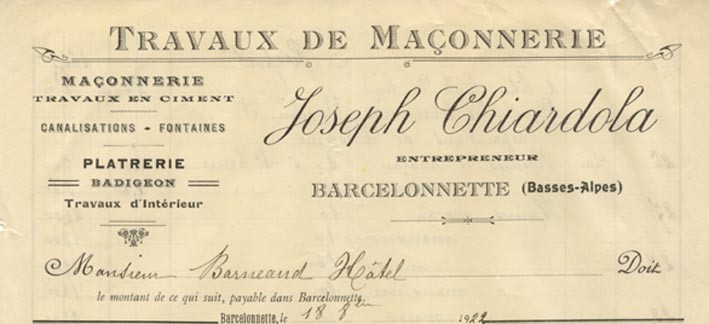 TRAVAUX DE MAÇONNERIE
MAÇONNERIE
TRAVAUX EN CIMENT
CANALISATIONS - FONTAINES
PLATRERIE
BADIGEON
Travaux d'Intérieur
Joseph Chiardola
ENTREPRENEUR
BARCELONNETTE (Basses-Alpes)
Monsieur Barneaud Hôtel Doit
le montant de ce qui suit, payable dans Barcelonnette.
Barcelonnette, le 18 8bre 1922